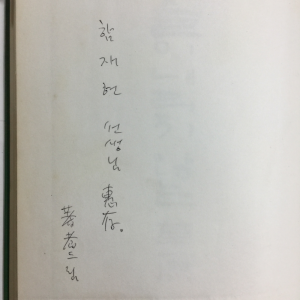 함재헌 선생님 惠存.
著者드림